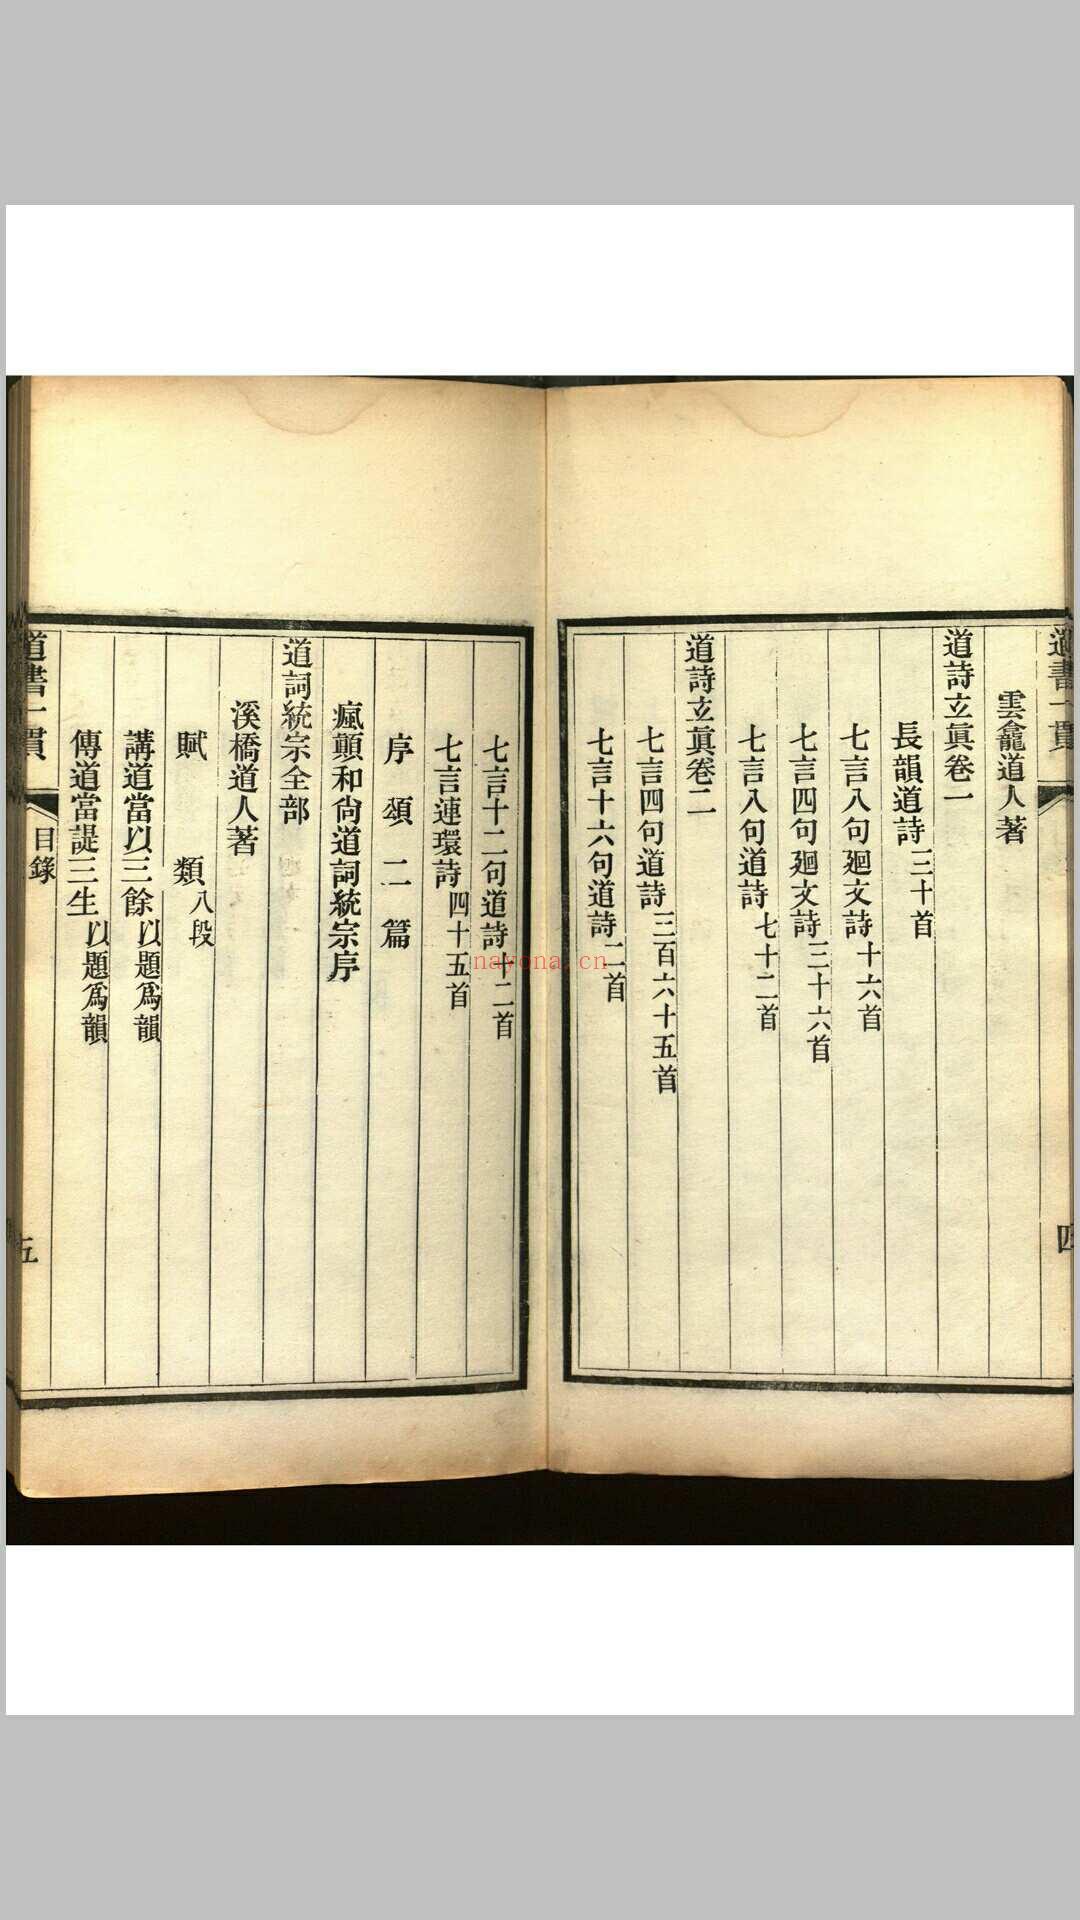 道書一貫
四
雲龕道人著
道詩立眞卷一
長韻道詩三十首
七言八句廻文詩十六首
七言四句廻文詩三十六首
七言八句道詩七十二首
道詩立眞卷二
七言四句道詩三百六十五首
七言十六句道詩二首
七言十二句道詩十二首
七言連環詩四十五首
序頌二篇
瘋顚和尙道詞統宗序
道詞統宗全部
溪橋道人著
賦類八段
講道當以三餘以題爲韻
傳道當諟三生以題爲韻
道書一貫
目錄
五
nayona.cn